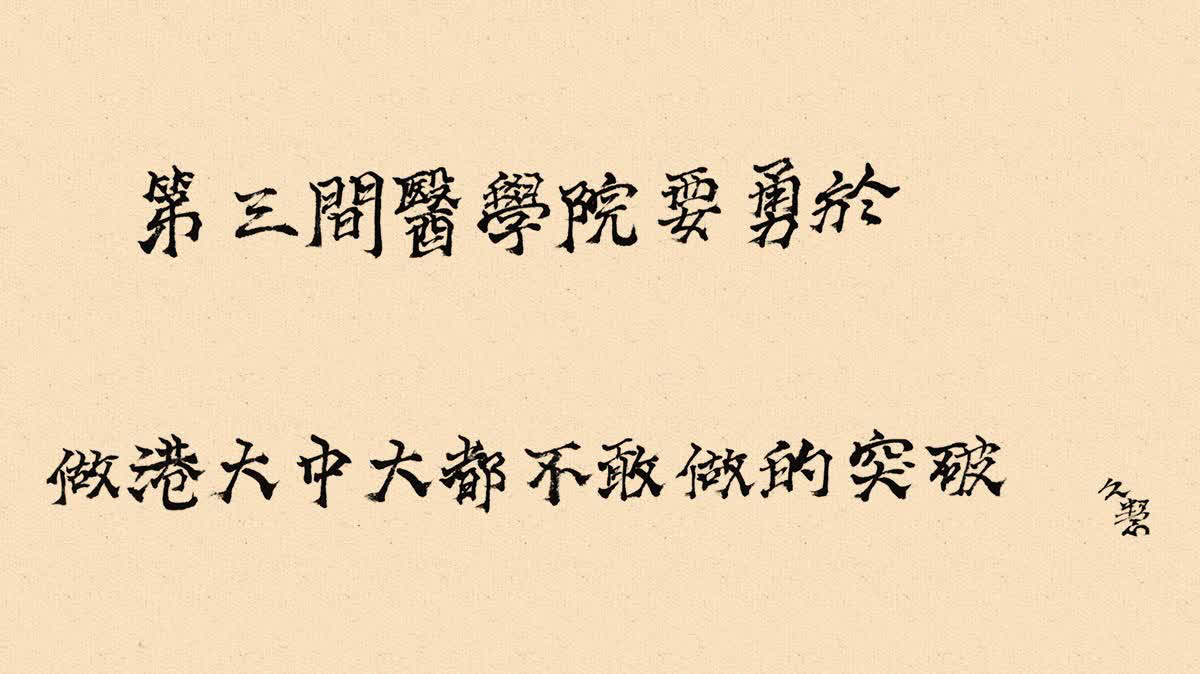 第三間醫學院要勇於
做港大中大都不敢做的突破